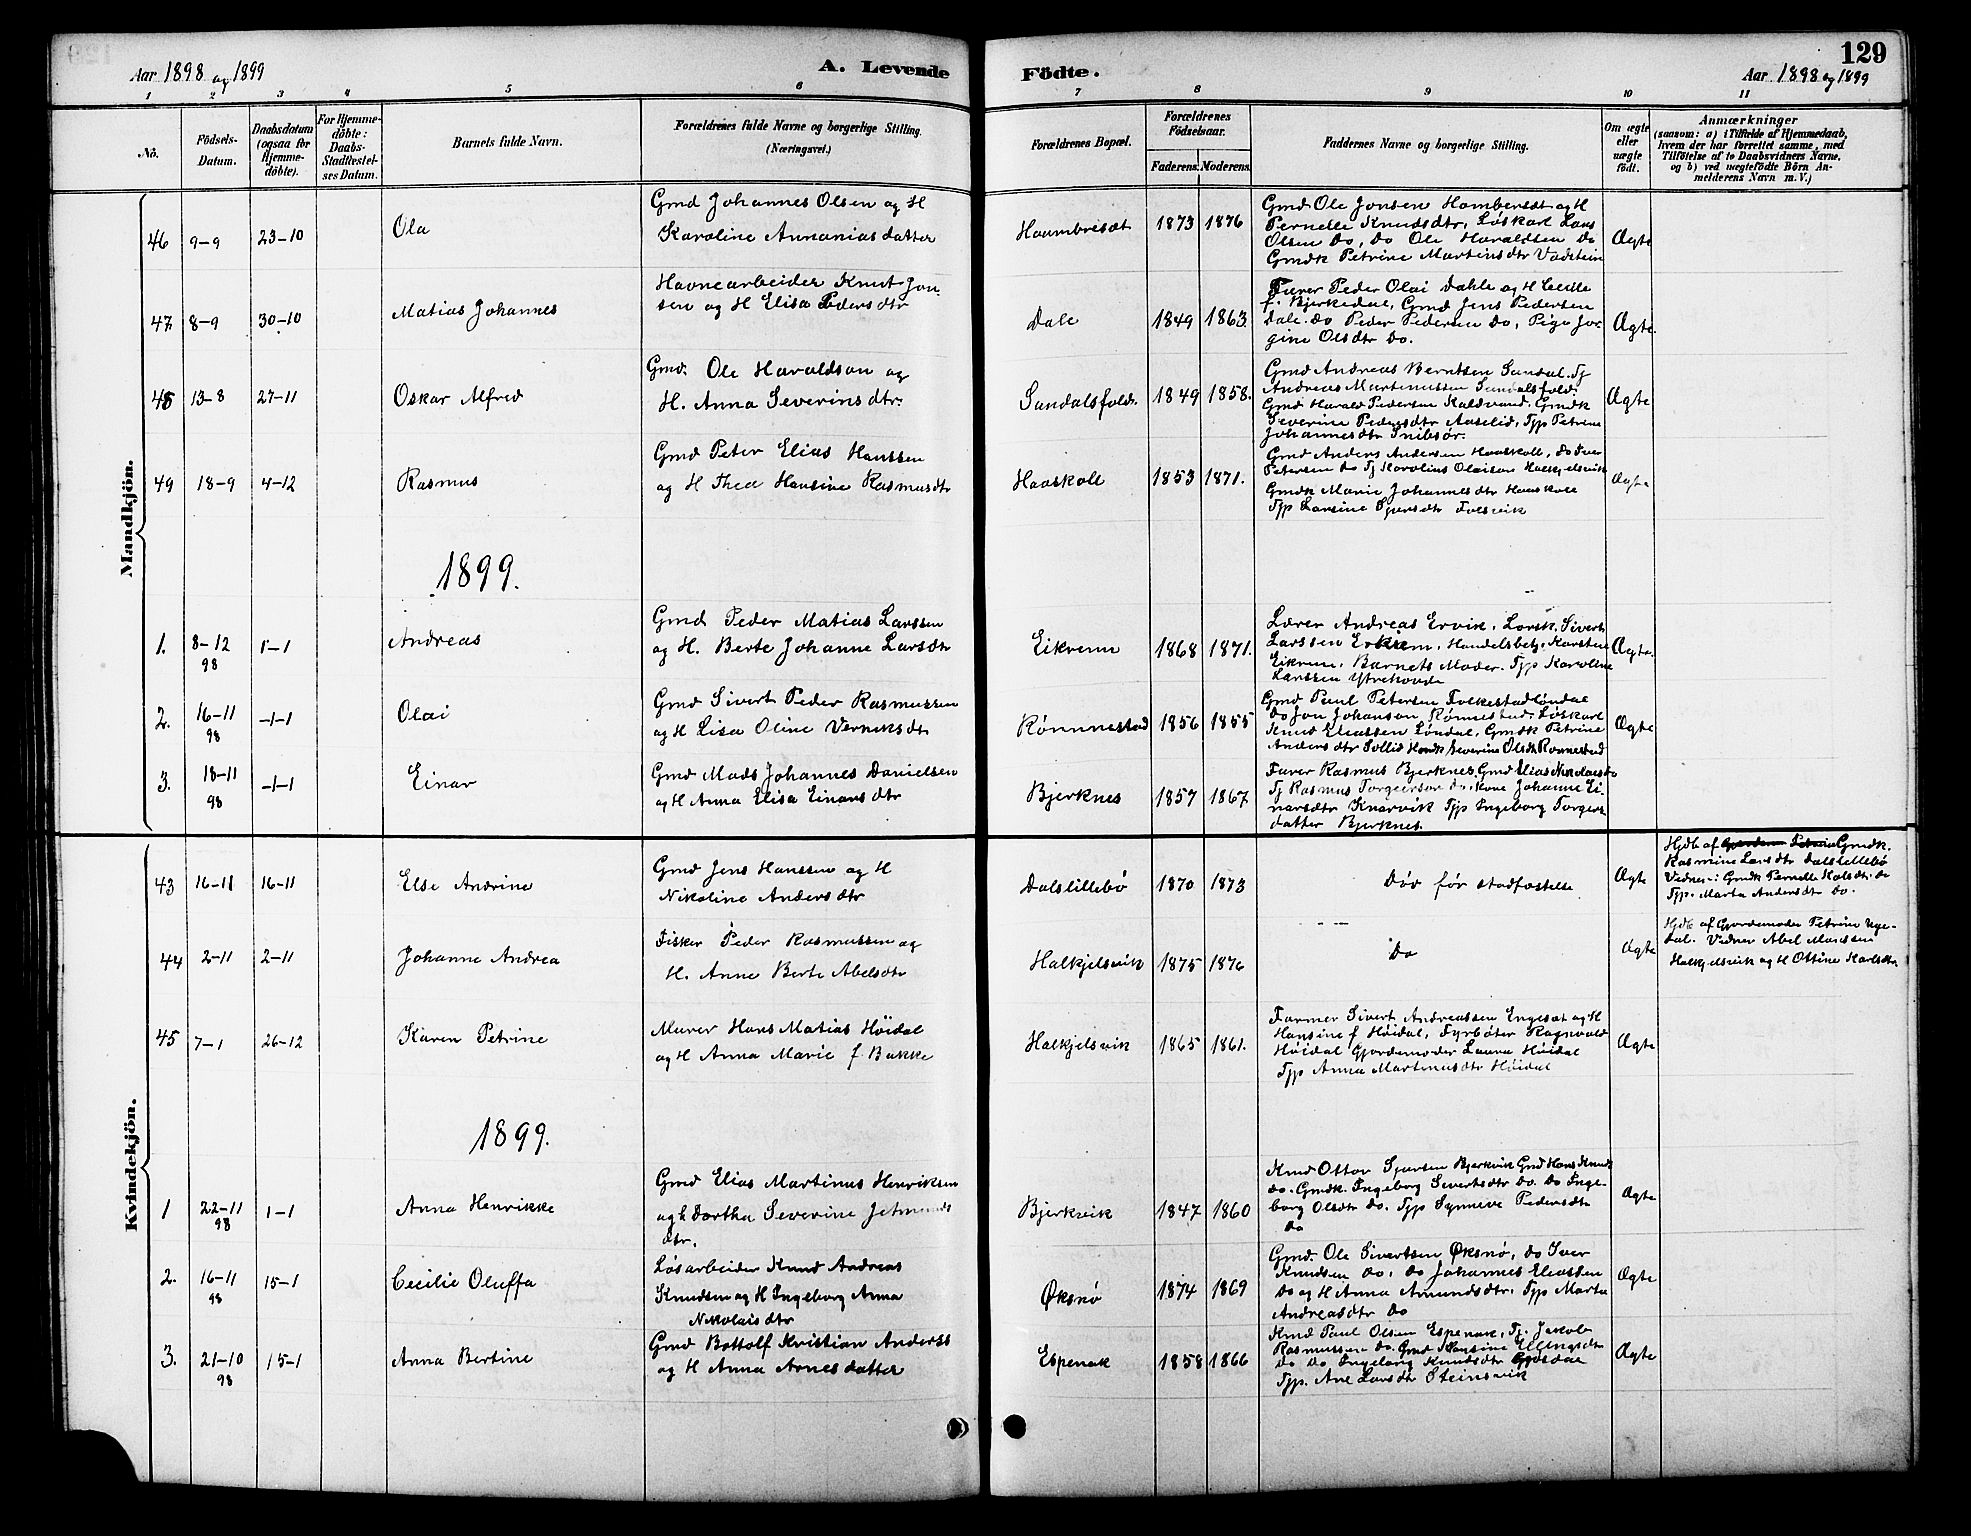 129
Aar 1898 og 1899
A. Levende Födte.
Aar 1898 og 1899
1 2 3 4 5 6 7 8 9 10 11
No.
Födsels-Datum.
Daabsdatum (ogsaa for Hjemme-döbte).
For Hjemme-döbte: Daabs-Stadfæstel-ses Datum.
Barnets fulde Navn.
Forældrenes fulde Navne og borgerlige Stilling. (Næringsvei.)
Forældrenes Bopæl.
Forældrenes Födselsaar.
Faderens. Moderens.
Faddernes Navne og borgerlige Stilling.
Om ægte eller uægte födt.
Anmærkninger
(saasom: a) i Tilfælde af Hjemmedaab,
hvem der har forrettet samme, med
Tilföielse af to Daabsvidners Navne,
og b) ved uægtefödte Börn An-
melderens Navn m. V.)
Mandkjön.
46 9-9 23-10 Ola
Gmd Johannes Olsen og H
Karoline Annaniasdatter
Haambresæt 1873 1876
Gmd Ole Jonsen Hambersæt og H
Pernelle Knudsdtr, Løskarl Lars
Olsen do, do Ole Haraldsen do
Gmdk Petrine Martinsdtr Vadstein
Ægte
47 8-9 30-10 Matias Johannes
Havnearbeider Knut Jon-
sen og H Elisa Pedersdtr
Dale 1849 1863.
Furer Peder Olai Dahle og H
f. Bjerkedal, Gmd Jens Pedersen
Dale. do Peder Pedersen do, Pige Jor-
gine Olsdtr do.
Ægte.
48 13-8 27-11 Oskar Alfred
Gmd. Ole Haraldson og
H. Anna Severinsdtr.
Sundalsfold. 1849 1858.
Gmd Andreas Berntsen Sundal. Tj
Andreas Martinussen Sundalsfold.
Gmd Harald Pedersen Kaldvand. Gmdk
Severine Pedersdtr Aaselid, Tjp Petrine
Johannesdtr Snibsør.
Ægte
49 18-9 4-12 Rasmus
Gmd Peter Elias Hanssen
og H Thea Hansine Rasmusdtr
Haaskole 1853 1871.
Gmd Anders Andersen Haaskole, do Iver
Petersen do Tj Karolius Olaison Halkjelsvik
Gmdk Marie Johannesdtr Haaskole
Tjp Larsine Sjursdtr Folsvik
Ægte
1899.
1. 8-12 98 1-1 Andreas
Gmd Peder Matias Larssen
og H. Berte Johanne Larsdtr
Eikrem 1868 1871.
Lærer Andreas Ervik, Lørsk. Sivert
Larssen Eikrem, Handelsbetj. Karsten
Eikrem. Barnets Moder. Tjp Karoline
Larssen Ytrehovde
Ægte.
2. 16-11 98 -1-1 Olai
Gmd Sivert Peder Rasmussen
og H Lisa Oline Verniksdtr
Rømnestad 1856 1855
Gmd Paul Petersen Folkestadløndal
do Jon Johanson Rønnestad, Løskarl
Knud Eliassen Løndal, Gmdk Petrine
Andersdtr Sollid Hmdk Severine Olsdtr Rønnestad
Ægte
3. 18-11 98 -1-1 Einar
Gmd Mads Johannes Danielsen
og H Anna Elisa Einarsdtr
Bjerknes 1857 1867
Furer Rasmus Bjerknes, Gmd Elias Nikolaes do
Tj Rasmus Torgerson do. Kone Johanne Ei-
narsdtr Knarvik Tjp Ingeborg Torgers
datter Bjerknes.
Kvindekjön.
43 16-11 16-11 Else Andrine
Gmd Jens Hanssen og H
Nikoline Andersdtr
Dalslillebø 1870 1873
Død før stadfæstelse
Ægte
Hjdb af Gmdk.
Rasmine Larsdtr Dalslillebø
Vidner: Gmdk Pernelle Kolsdtr do
Tjp. Marta Andersdtr do.
44 2-11 2-11 Johanne Andrea
Fisker Peder Rasmussen og
H. Anne Berte Abelsdtr
Halkjelsvik 1875 1876
Do
Ægte
Hjdb af Gjordemoder Petrine Nye-
dal. Vidner Abel Marssen
Halkjelsvik og H Ottine Karlsdtr.
45 7-1 26-12 Karen Petrine
Murer Hans Matias Höidal
og H Anna Marie f Bakke
Halkjelsvik 1865 1861.
Farmer Sivert Andreassen Engeset og H
Hansine f Höidal, Fyrbøter Ragnvald
Höidal Gjordemoder Laura Höidal
Tjp Anna Martinusdtr Höidal
Ægte
1899.
1 22-11 98 1-1 Anna Henrikke
Gmd Elias Martinus Henriksen
og H Dorthea Severine Jetmunds
dtr.
Bjerkvik 1847 1860
Kmd Ottar Sjursen Bjerkvik Gmd Hans Knuds
do. Gmdk. Ingeborg Sivertsdtr do. do Inge-
borg Olsdtr do. Tjp Synneve Pedersdtr
do
Ægte
2. 16-11 98 15-1 Cecilie Oluffa
Løsarbeider Knud Andreas
Knudsen og H Ingeborg Anna
Nikolaisdtr
Øksnø 1874 1869
Gmd. Ole Sivertsen Øksnø, do Iver
Knudsen do, do Johannes Eliassen
do og H Anna Amundsdtr, Tjp Marta
Andreasdtr do
Ægte
3. 21-10 98 15-1 Anna Bertine
Gmd Bottolf Kristian Anderss
og H Anna Arnesdatter
Espenak 1858 1866
Kmd Paul Olsen Espenak, Tj. Jakob
Rasmussen do. Gmd Hansine Ellingsdtr
do do Ingeborg Knudsdtr
Tjp. Ane Larsdtr Steinsvik
Ægte